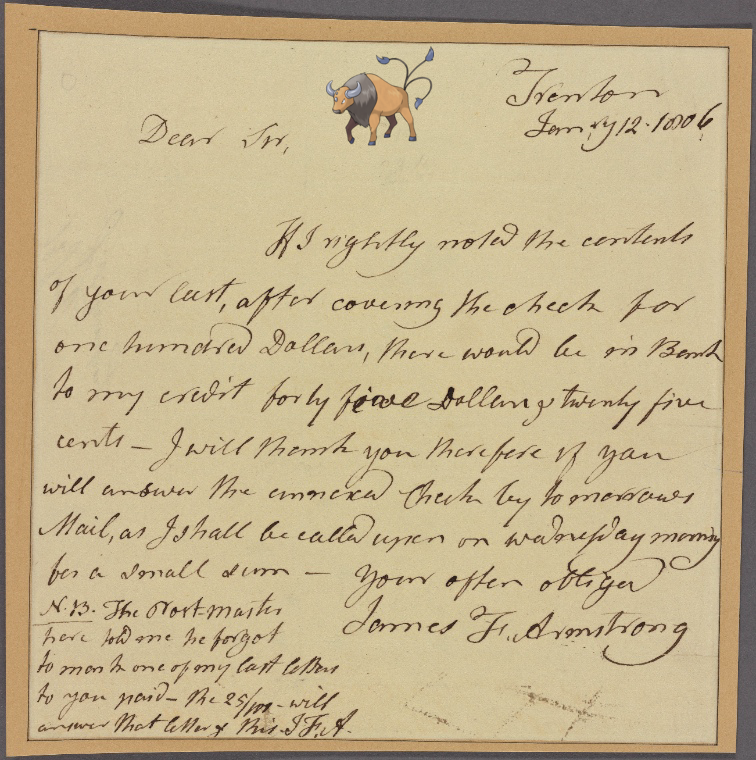 Trenton
Jan.ry 12. 1806
Dear Sir,
If I rightly noted the contents
of your last, after covering the check for
one hundred Dollars, there would be in Bank
to my credit forty five Dollars & twenty five
cents – I will thank you therefore if you
will answer the annexed Check by tomorrows
Mail, as I shall be called upon on wednesday morning
for a small sum – Your often obliged
James F. Armstrong
N.B. The Post-master
here told me he forgot
to mark one of my last letters
to you paid – the 25/100 – will
answer that letter & this. J.F.A.